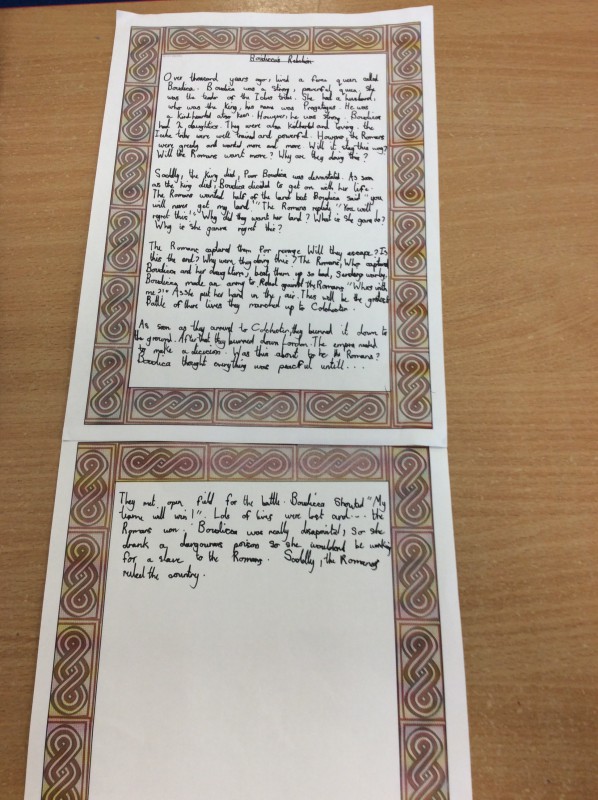 Boudicca's Rebelion
Over thousand years ago, lived a fierce queen called
Boudica. Boudica was a strong, powerful queen, she
was the leader of the Iceni tribe. She had a husband,
who was the King, his name was Prasatagus. He was
a Kind-hearted also keen. However, he was strong. Boudicca
had 2 daughters. They were also Kindharted and loving. the
Iceni tribe were well trained and powerful. However, the Romans
were greedy and wanted more and more. Will it stay this way?
Will the Romans want more? Why are they doing this?
Saddly, the King died, Poor Boudica was devastated. As soon
as the king died, Boudica decided to get on with her life.
The Romans wanted half of the land but Boudica said "you
will never get my land!" The Romans replied "You will
regret this!" Why did they want her land? What is she gonna do?
Why is she gonna regret this?
The Romans captured them for revenge Will they escape? Is
this the end? Why were they doing this? The Romans, Who captured
Boudicca and her daughters, beat them up so bad,
Boudicca made an army to Rebel against the Romans "Whos with
me?!" As she put her hand in the air. This will be the greatest
Battle of there lives they marched up to Colchester.
As soon as they arrived to Colchester, they burned it down to
the ground. After that they burned down London. The empire needed
to make a decision. Was this about to be the Romans?
Boudica thought everything was peacful untill...
They met open field for the battle. Boudicca shouted "My
teame will win!". Lots of lives were lost and... the
Romans won. Boudicca was really disapointed, So she
drank a dangourous poison so she wouldent be working
for a slave to the Romans. Saddly, the Romans
ruled the country.